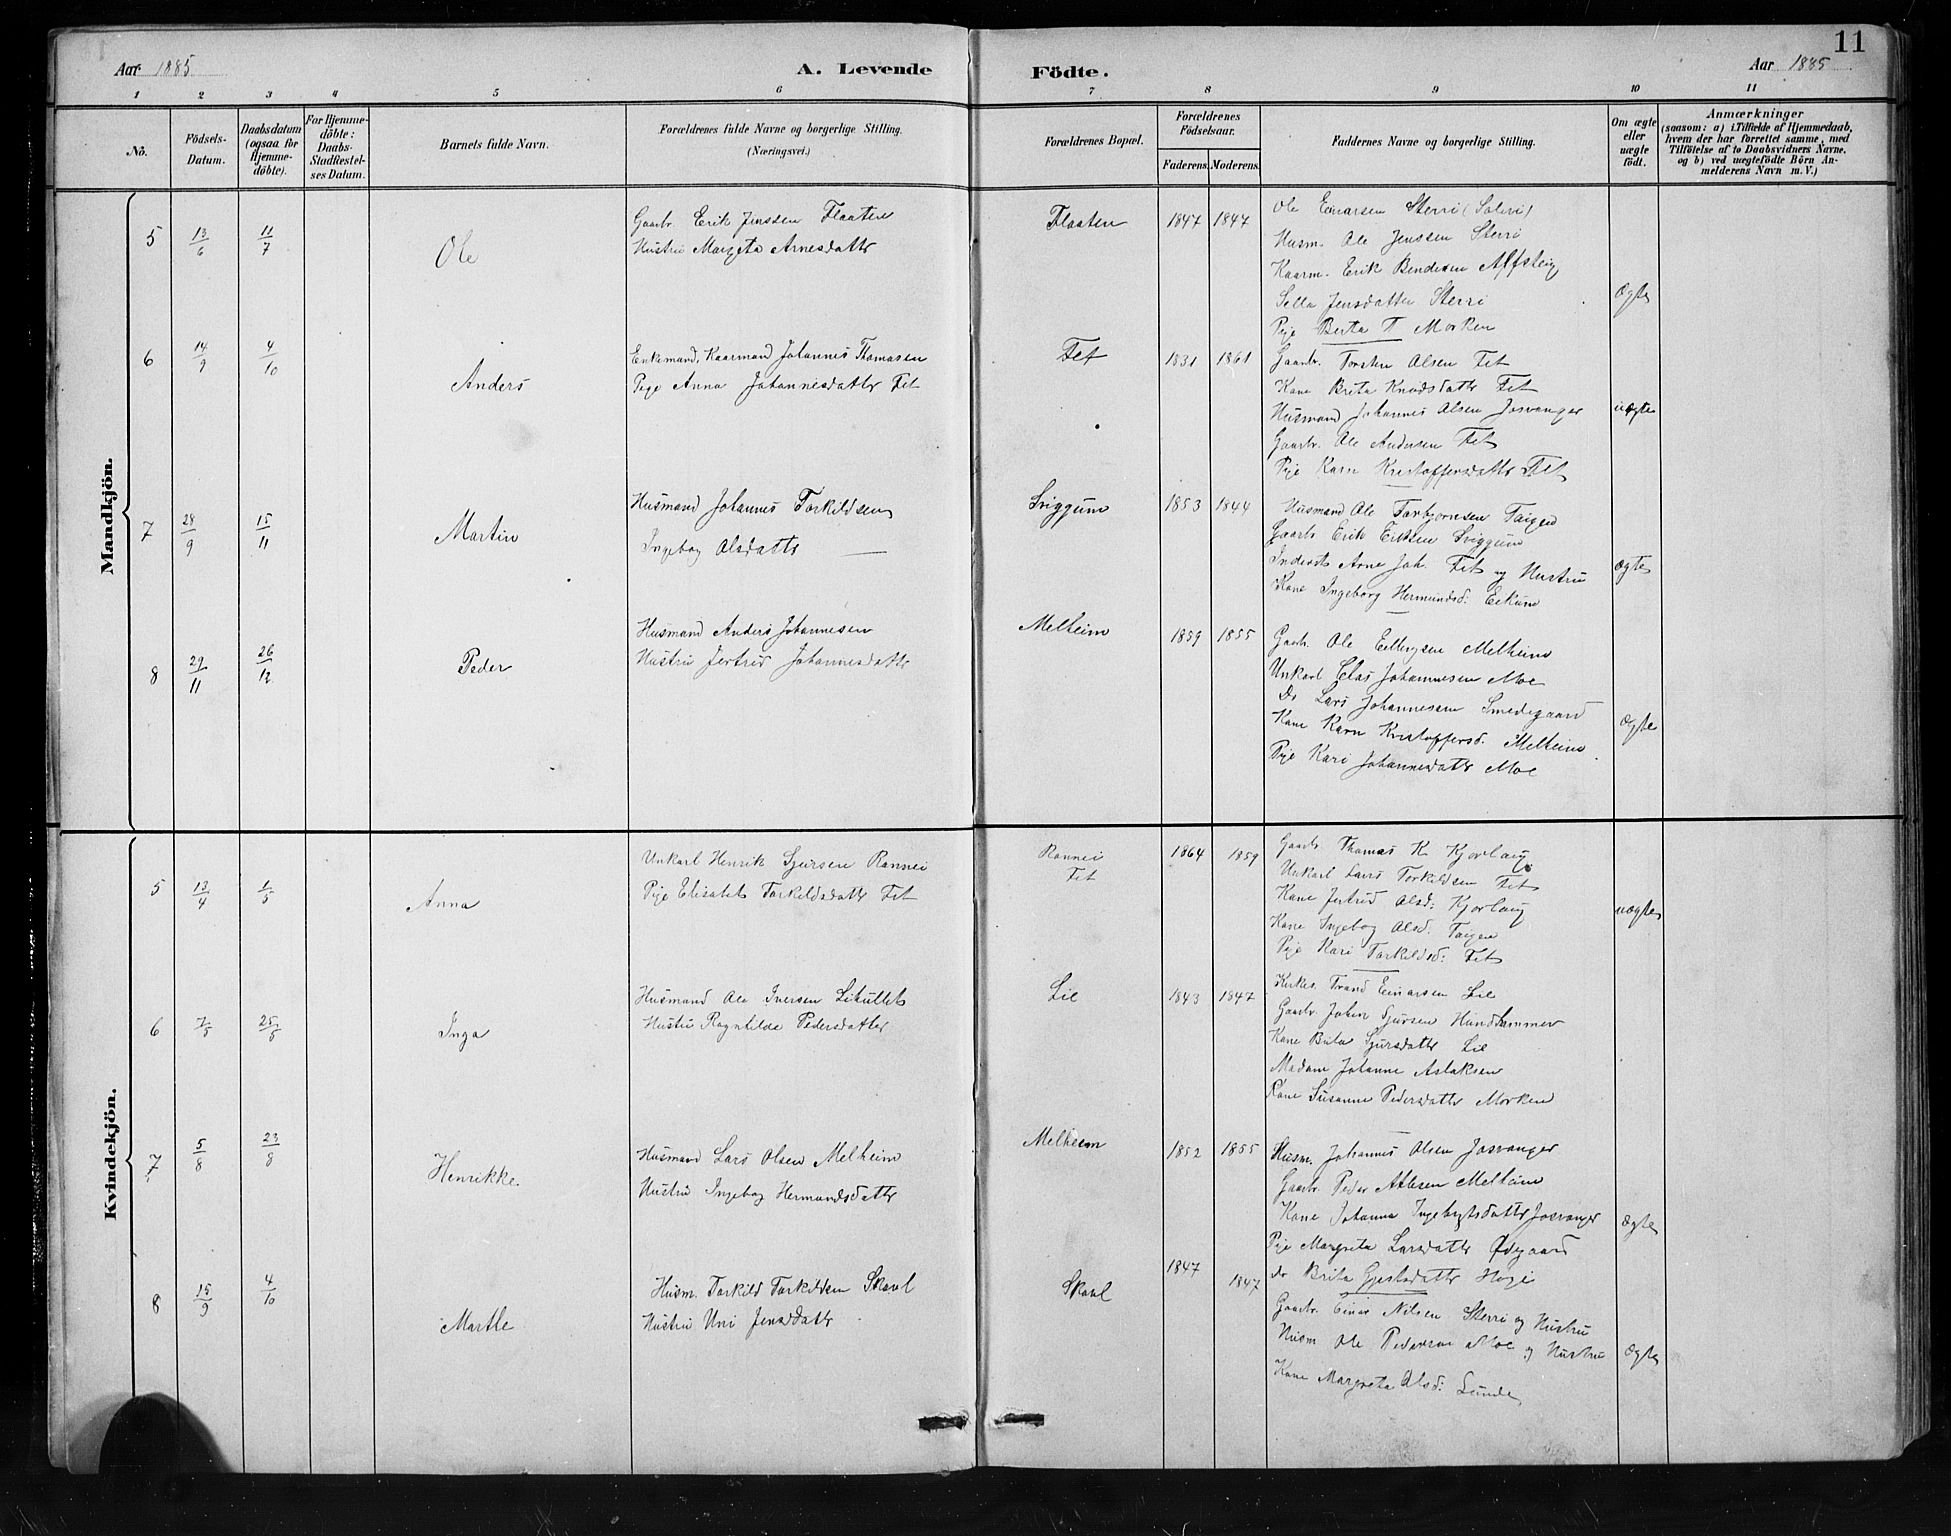 11
Aar 1885
A. Levende Födte.
Aar 1885
1 2 3 4 5 6 7 8 9 10 11
No.
Födsels-Datum.
Daabsdatum (ogsaa for Hjemme-döbte).
For Hjemme-döbte: Daabs-Stadfæstel-ses Datum.
Barnets fulde Navn.
Forældrenes fulde Navne og borgerlige Stilling.
(Næringsvei.)
Forældrenes Bopæl.
Forældrenes Födselsaar.
Faderens.
Moderens.
Faddernes Navne og borgerlige Stilling.
Om ægte eller uægte födt.
Anmærkninger
(saasom: a) i Tilfælde af Hjemmedaab,
hvem der har forrettet samme, med
Tilföielse af to Daabsvidners Navne.
og b) ved uægtefödte Börn An-
melderens Navn m. V.)
Mandkjön.
5 13/6 11/7 Ole
Gaarbr. Erik Jenssen Flaaten
Hustru Margeta Arnesdattr
Flaaten 1847 1847
Ole Einarsen Sterri (Soleri)
Husm. Ole Jenssen Sterri
Kaarm. Erik Bendixen Alfsteig
Sella Jensdatter Sterri
Pige Berta T Morken
Ægte
6 14/9 4/10 Anders
Enkemand, Kaarmand Johannes Thomasen
Pige Anna Johannesdattr Fet
Fet 1831 1861
Gaarbr. Torsten Olsen Fet
Kone Brita Knudsdattr Fet
Husmand Johannes Olsen Josvanger
Gaarbr. Ole Andersen Fet
Pige Karn Kristoffersdattr Fet
uægte
7 28/9 15/11 Martin
Husmand Johannes Torkildsen
Ingebog Olsdattr —
Sviggum 1853 1844
Husmand Ole Torbjornsen Taigen
Gaarbr Erik Eriksen Sviggum
Inderst Arne Joh. Fet og Hustru
Kone Ingeborg Hermundsd: Eikum
Ægte
8 29/11 26/12 Peder
Husmand Anders Johannesen
Hustru Jertrud Johannesdattr
Melheim 1859 1855
Gaarbr. Ole Ellingsen Melheim
Unkarl Elas Johannesen Moe
Do Lars Johannesen Smedegaard
Kone Karn Kristoffersd. Melheim
Pige Kari Johannesdattr Moe
Ægte
Kvindekjön.
5 13/4 1/5 Anna
Unkarl Henrik Sjursen Rannei
Pige Elisabet Torkildsdattr Fet
Rannei
Fet
1864 1859
Gaarbr Thomas K Kjorlaug
Unkarl Lars Torkildsen Fet
Kone Jertrud Olsd: Kjorlaug
Kone Ingebog Olsd. Taigen
Pige Kari Torkildsd: Fet
uægte
6 7/5 25/5 Inga
Husmand Ole Iversen Likullet
Hustru Ragnhilda Pedersdatter
Lie 1843 1847
Kirkes. Trand Einarsen Lie
Gaarbr. Johan Sjursen Hundhammer
Kone Brita Sjursdattr Lie
Madam Johanne Aslaksen
Kone Susanne Pedersdattr Morken
7 5/8 23/8 Henrikke
Husmand Lars Olsen Melheim
Hustru Ingebog Hermundsdattr
Melheim 1852 1855
Husm. Johannes Olsen Josvanger
Gaarbr. Peder Atlesen Melheim
Kone Johanna Ingebrgtsdattr Josvanger
Pige Margreta Larsdattr Ødegaard
do Brita Gjestsdattr Hage
Ægte
8 15/9 4/10 Marthe
Husm. Torkild Torkildsen Skaul
Hustru Uni Jensdattr
Skaul 1847 1847
Gaarbr. Einar Nilsen Sterri og Hustru
Husm Ole Pedersen Moe og Hustru
Kone Margreta Olsd: Lunde
Ægte